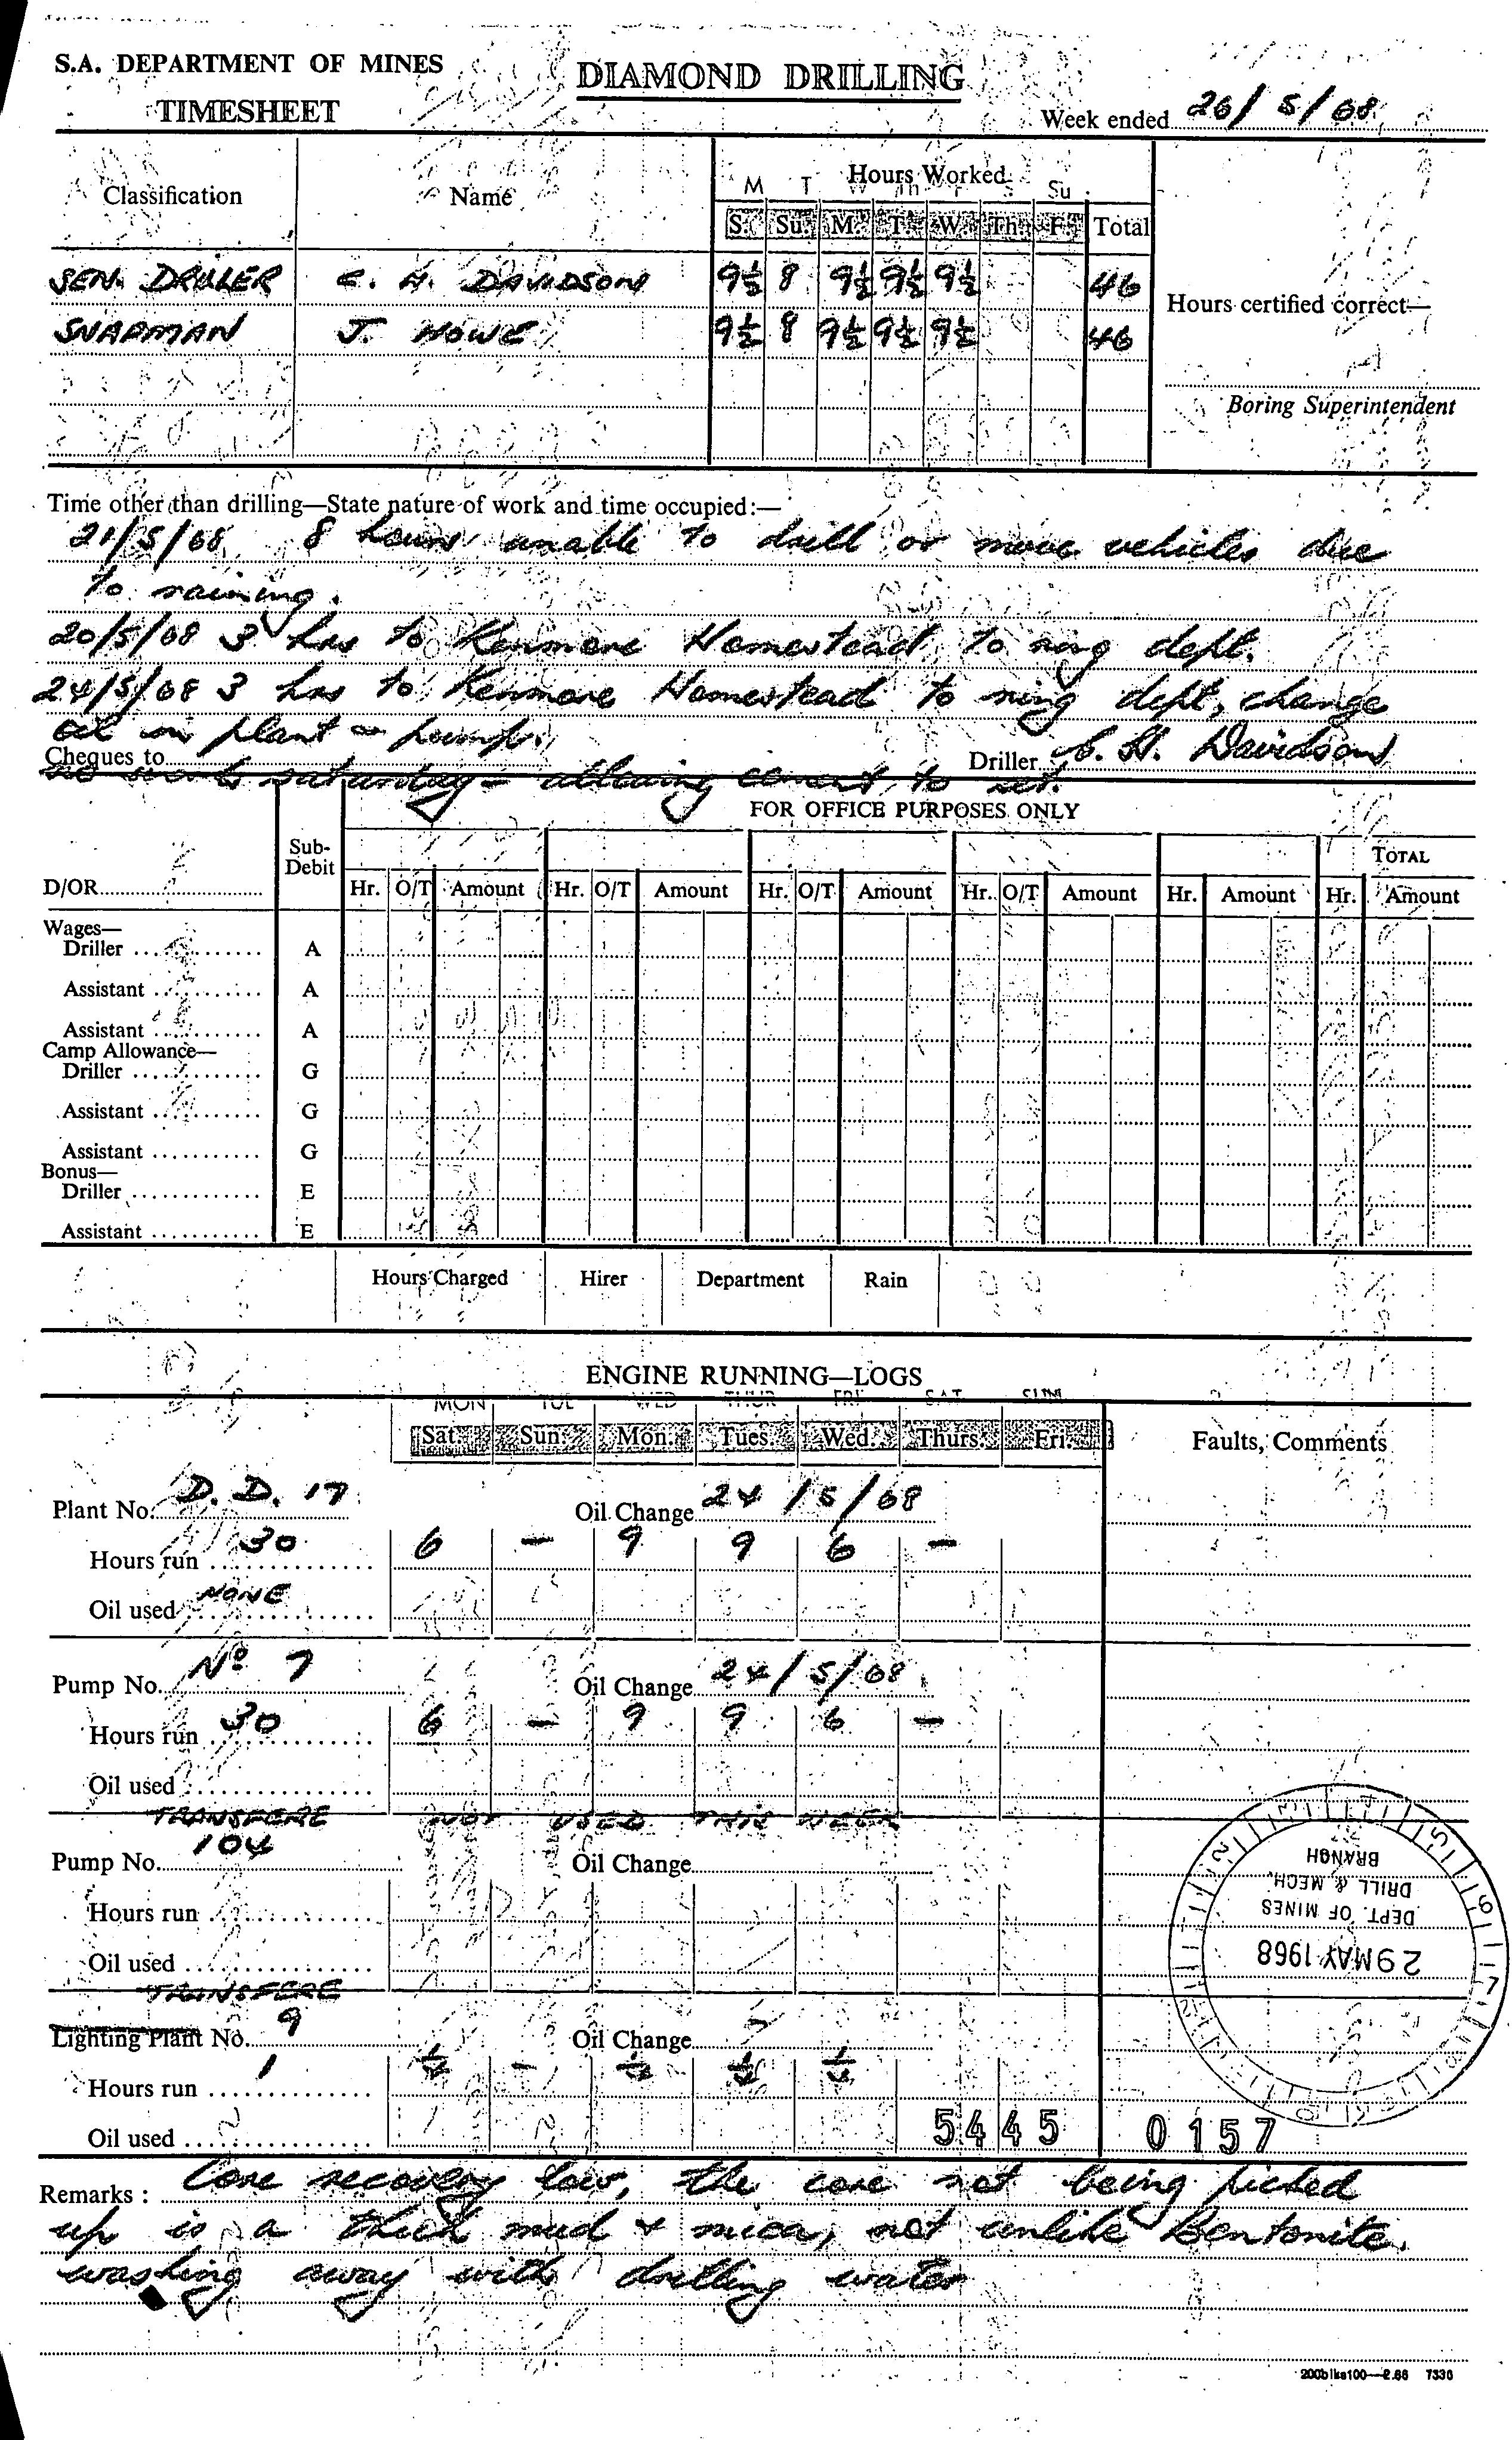 S.A. DEPARTMENT OF MINES
DIAMOND DRILLING
TIMESHEET
Week ended 26/5/68
Classification Name Hours Worked
M T W Th F S Su
S. Su. M. T. W. Th. F. Total
SEN. DRILLER C. H. DAVIDSON 9½ 8 9½ 9½ 9½ 46
SNAPMAN J. HOWE 9½ 8 9½ 9½ 9½ 46
Hours certified correct—
Boring Superintendent
Time other than drilling—State nature of work and time occupied:—
21/5/68 8 hours unable to drill or move vehicles due
to raining.
20/5/68 3 hrs to Kenmore Homestead to ring dept.
24/5/68 3 hrs to Kenmore Homestead to ring dept, change
oil in plant & pump.
Cheques to Driller C. H. Davidson
no work saturday - allowing cement to set.
FOR OFFICE PURPOSES ONLY
Sub-Debit TOTAL
D/OR Hr. O/T Amount Hr. O/T Amount Hr. O/T Amount Hr. O/T Amount Hr. Amount Hr. Amount
Wages—
Driller A
Assistant A
Assistant A
Camp Allowance—
Driller G
Assistant G
Assistant G
Bonus—
Driller E
Assistant E
Hours Charged Hirer Department Rain
ENGINE RUNNING—LOGS
MON TUE WED THUR FRI SAT SUN
Sat. Sun. Mon. Tues. Wed. Thurs. Fri. Faults, Comments
Plant No. D. D. 17 Oil Change 24/5/68
Hours run 30 6 - 9 9 6 -
Oil used NONE
Pump No. No 7 Oil Change 24/5/68
Hours run 30 6 - 9 9 6 -
Oil used
TRANSFERE NOT USED THIS WEEK
Pump No. 104 Oil Change
Hours run
Oil used
TRANSFERE
Lighting Plant No. 9 Oil Change
Hours run 1 ¼ - ¼ ¼ ¼
Oil used
5445 0157
29 MAY 1968
DEPT. OF MINES
DRILL & MECH.
BRANCH
Remarks: Core recovery low, the core not being picked
up is a thick mud & mica, not unlike Bentonite.
washing away with drilling water
200blks100—2.66 7330